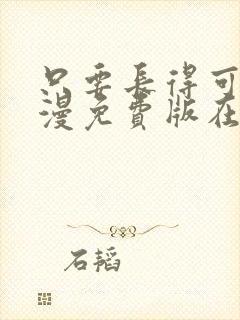 只要長得可
漫免費版在
石韬